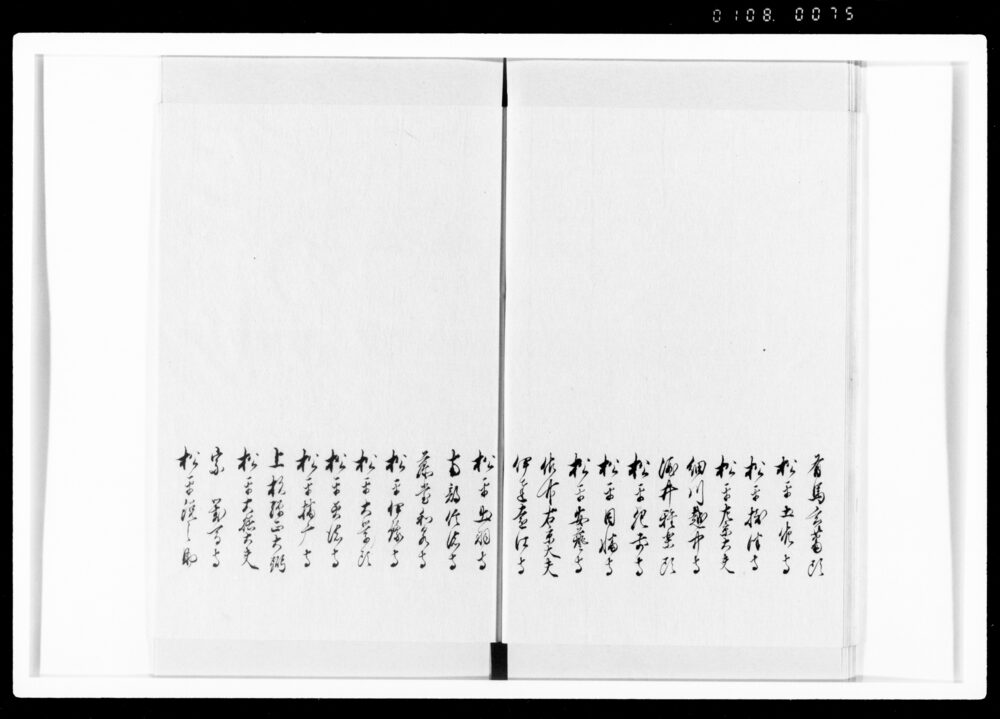 0108. 0075
有馬玄蕃頭
松平土佐守
松平摂津守
松平左京大夫
細川越中守
酒井雅楽頭
松平肥前守
松平因幡守
松平安藝守
佐竹右京大夫
伊達遠江守
松平出羽守
南部信濃守
藤堂和泉守
松平伊豫守
松平大学頭
松平美濃守
松平播广守
上杉弾正大弼
松平大膳大夫
宗 對馬守
松平之助